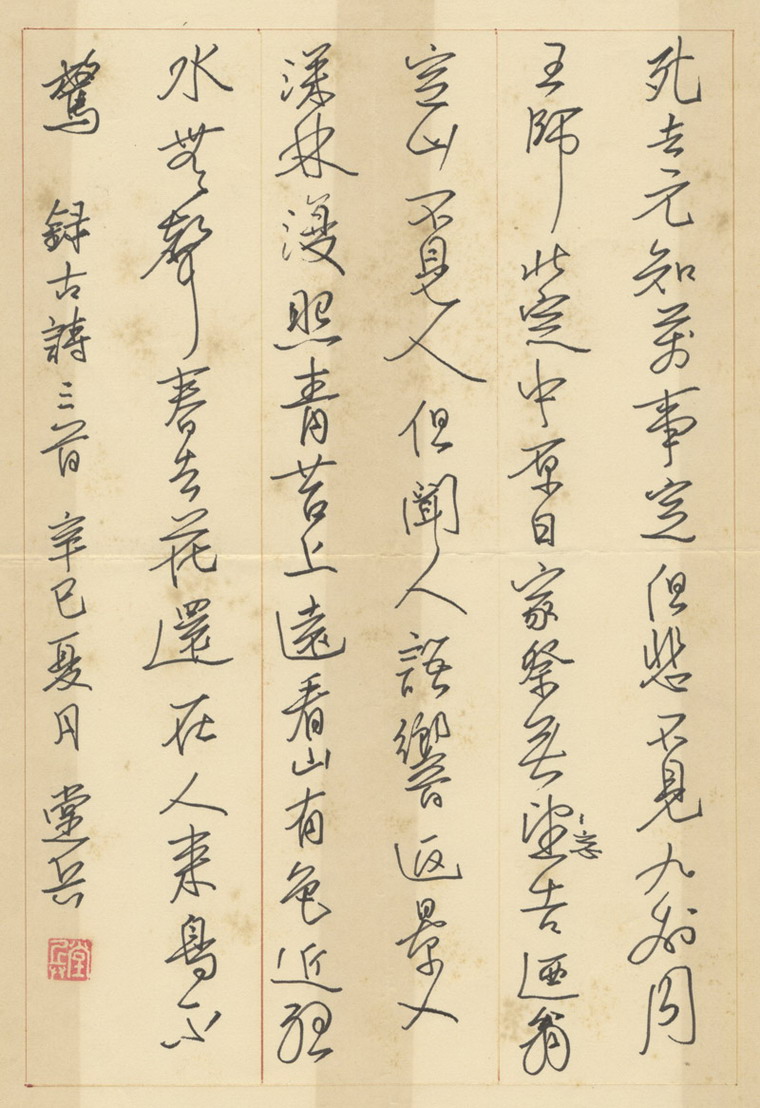 死去元知萬事空但悲不見九州同
王師北定中原日家祭無望告迺翁
忘
空山不見人但聞人語響返景入
深林復照青苔上遠看山有色近聽
水無聲春去花還在人來鳥不
驚 錄古詩三首 辛巳夏月 堂兵
堂兵